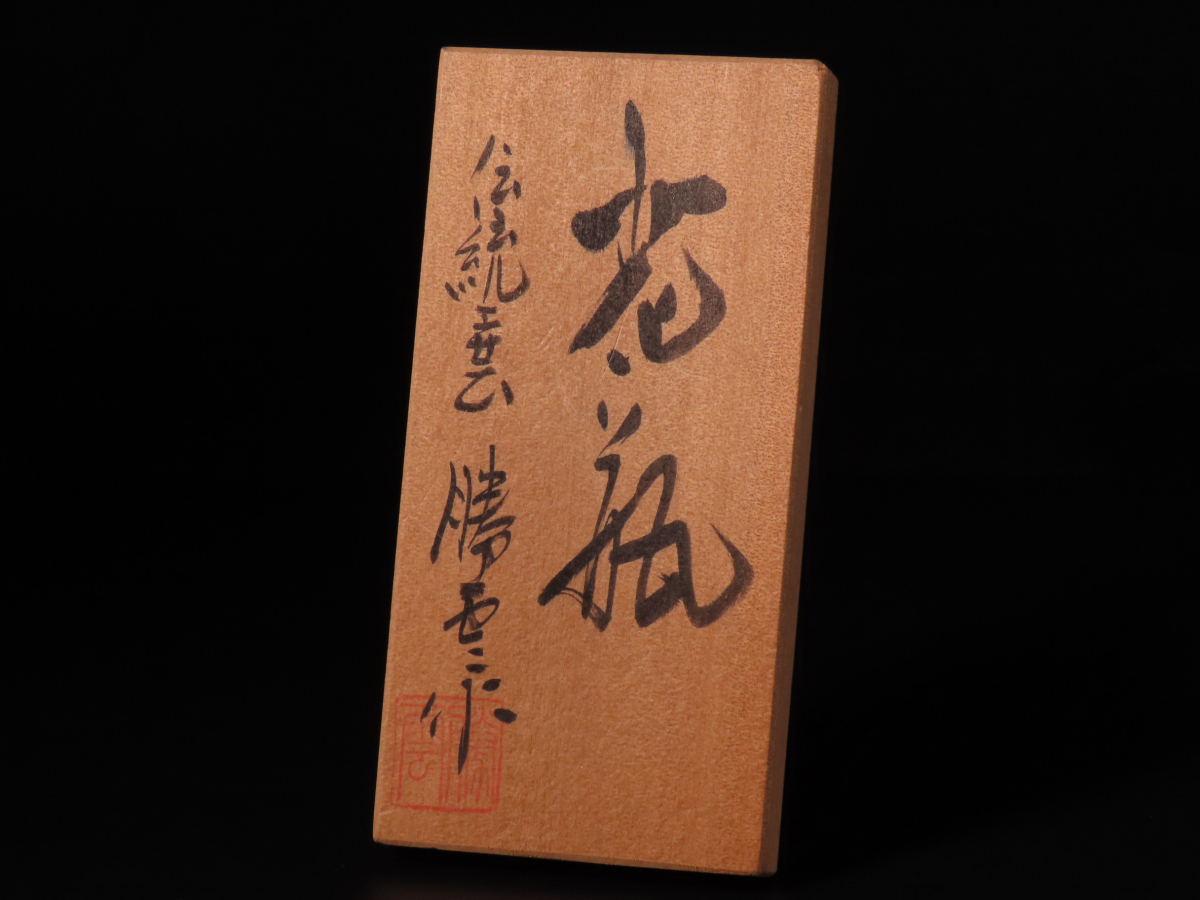 花瓶
伝統工芸 勝雲作